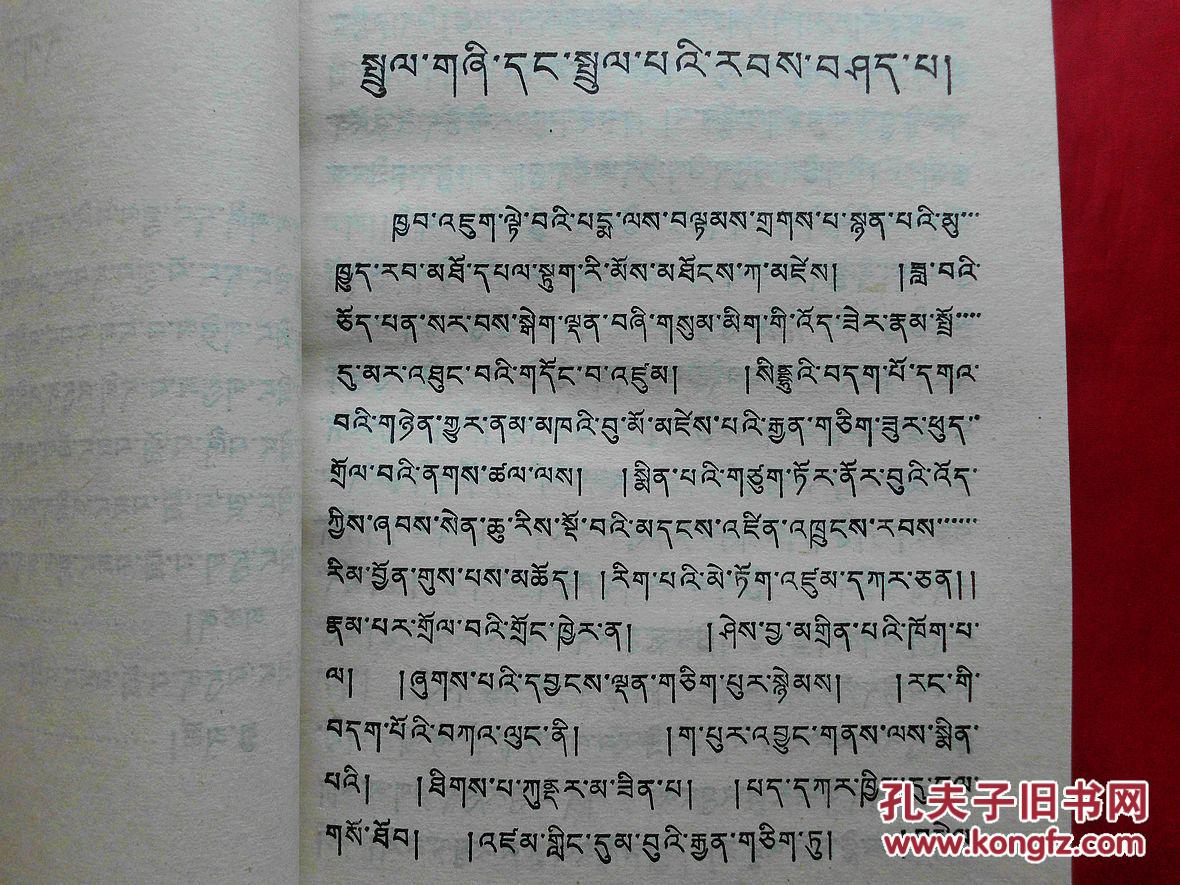 སྤྲུལ་གཞི་དང་སྤྲུལ་པའི་རབས་བཤད་པ།
ཁྱབ་འཇུག་ལྟེ་བའི་པདྨ་ལས་བལྟམས་གྲགས་པ་སྙན་པའི་མུ་་་
ཁྱུད་རབ་མཐོ་དཔལ་སྟུག་རི་མོས་མཐོངས་ཀ་མཛེས། །ཟླ་བའི་
ཅོད་པན་སར་བས་སྒེག་ལྡན་བཞི་གསུམ་མིག་གི་འོད་ཟེར་རྣམ་སྤྲོ་་་་
དུ་མར་འཐུང་བའི་གདོང་བ་འཛུམ། །སིནྡྷུའི་བདག་པོ་དགའ་
བའི་གཉེན་གྱུར་ནམ་མཁའི་བུ་མོ་མཛེས་པའི་རྒྱན་གཅིག་ཟུར་ཕུད་་
གྲོལ་བའི་ནགས་ཚལ་ལས། །སྨིན་པའི་གཙུག་ཏོར་ནོར་བུའི་འོད་
ཀྱིས་ཞབས་སེན་ཆུ་རིས་སྔོ་བའི་མདངས་འཛིན་འཁྲུངས་རབས་་་་་་
རིམ་བྱོན་གུས་པས་མཆོད། །རིག་པའི་མེ་ཏོག་འཛུམ་དཀར་ཅན།།
རྣམ་པར་གྲོལ་བའི་གྲོང་ཁྱེར་ན། །ཤེས་བྱ་མགྲིན་པའི་ཁོག་པ་
ལ། །ཞུགས་པའི་དབྱངས་ལྡན་གཅིག་པུར་སྙེམས། །རང་གི་
བདག་པོའི་བཀའ་ལུང་ནི། །ག་པུར་འབྱུང་གནས་ལས་སྨིན་
པའི། །ཐིགས་པ་ཀུནྡར་མ་ཟིན་པ། །པད་དཀར་ཁྱིད་དུ་
གསོ་ཐོབ། །འཛམ་གླིང་དུམ་བུའི་རྒྱན་གཅིག་ཏུ།
孔夫子旧书网
www.kongfz.com